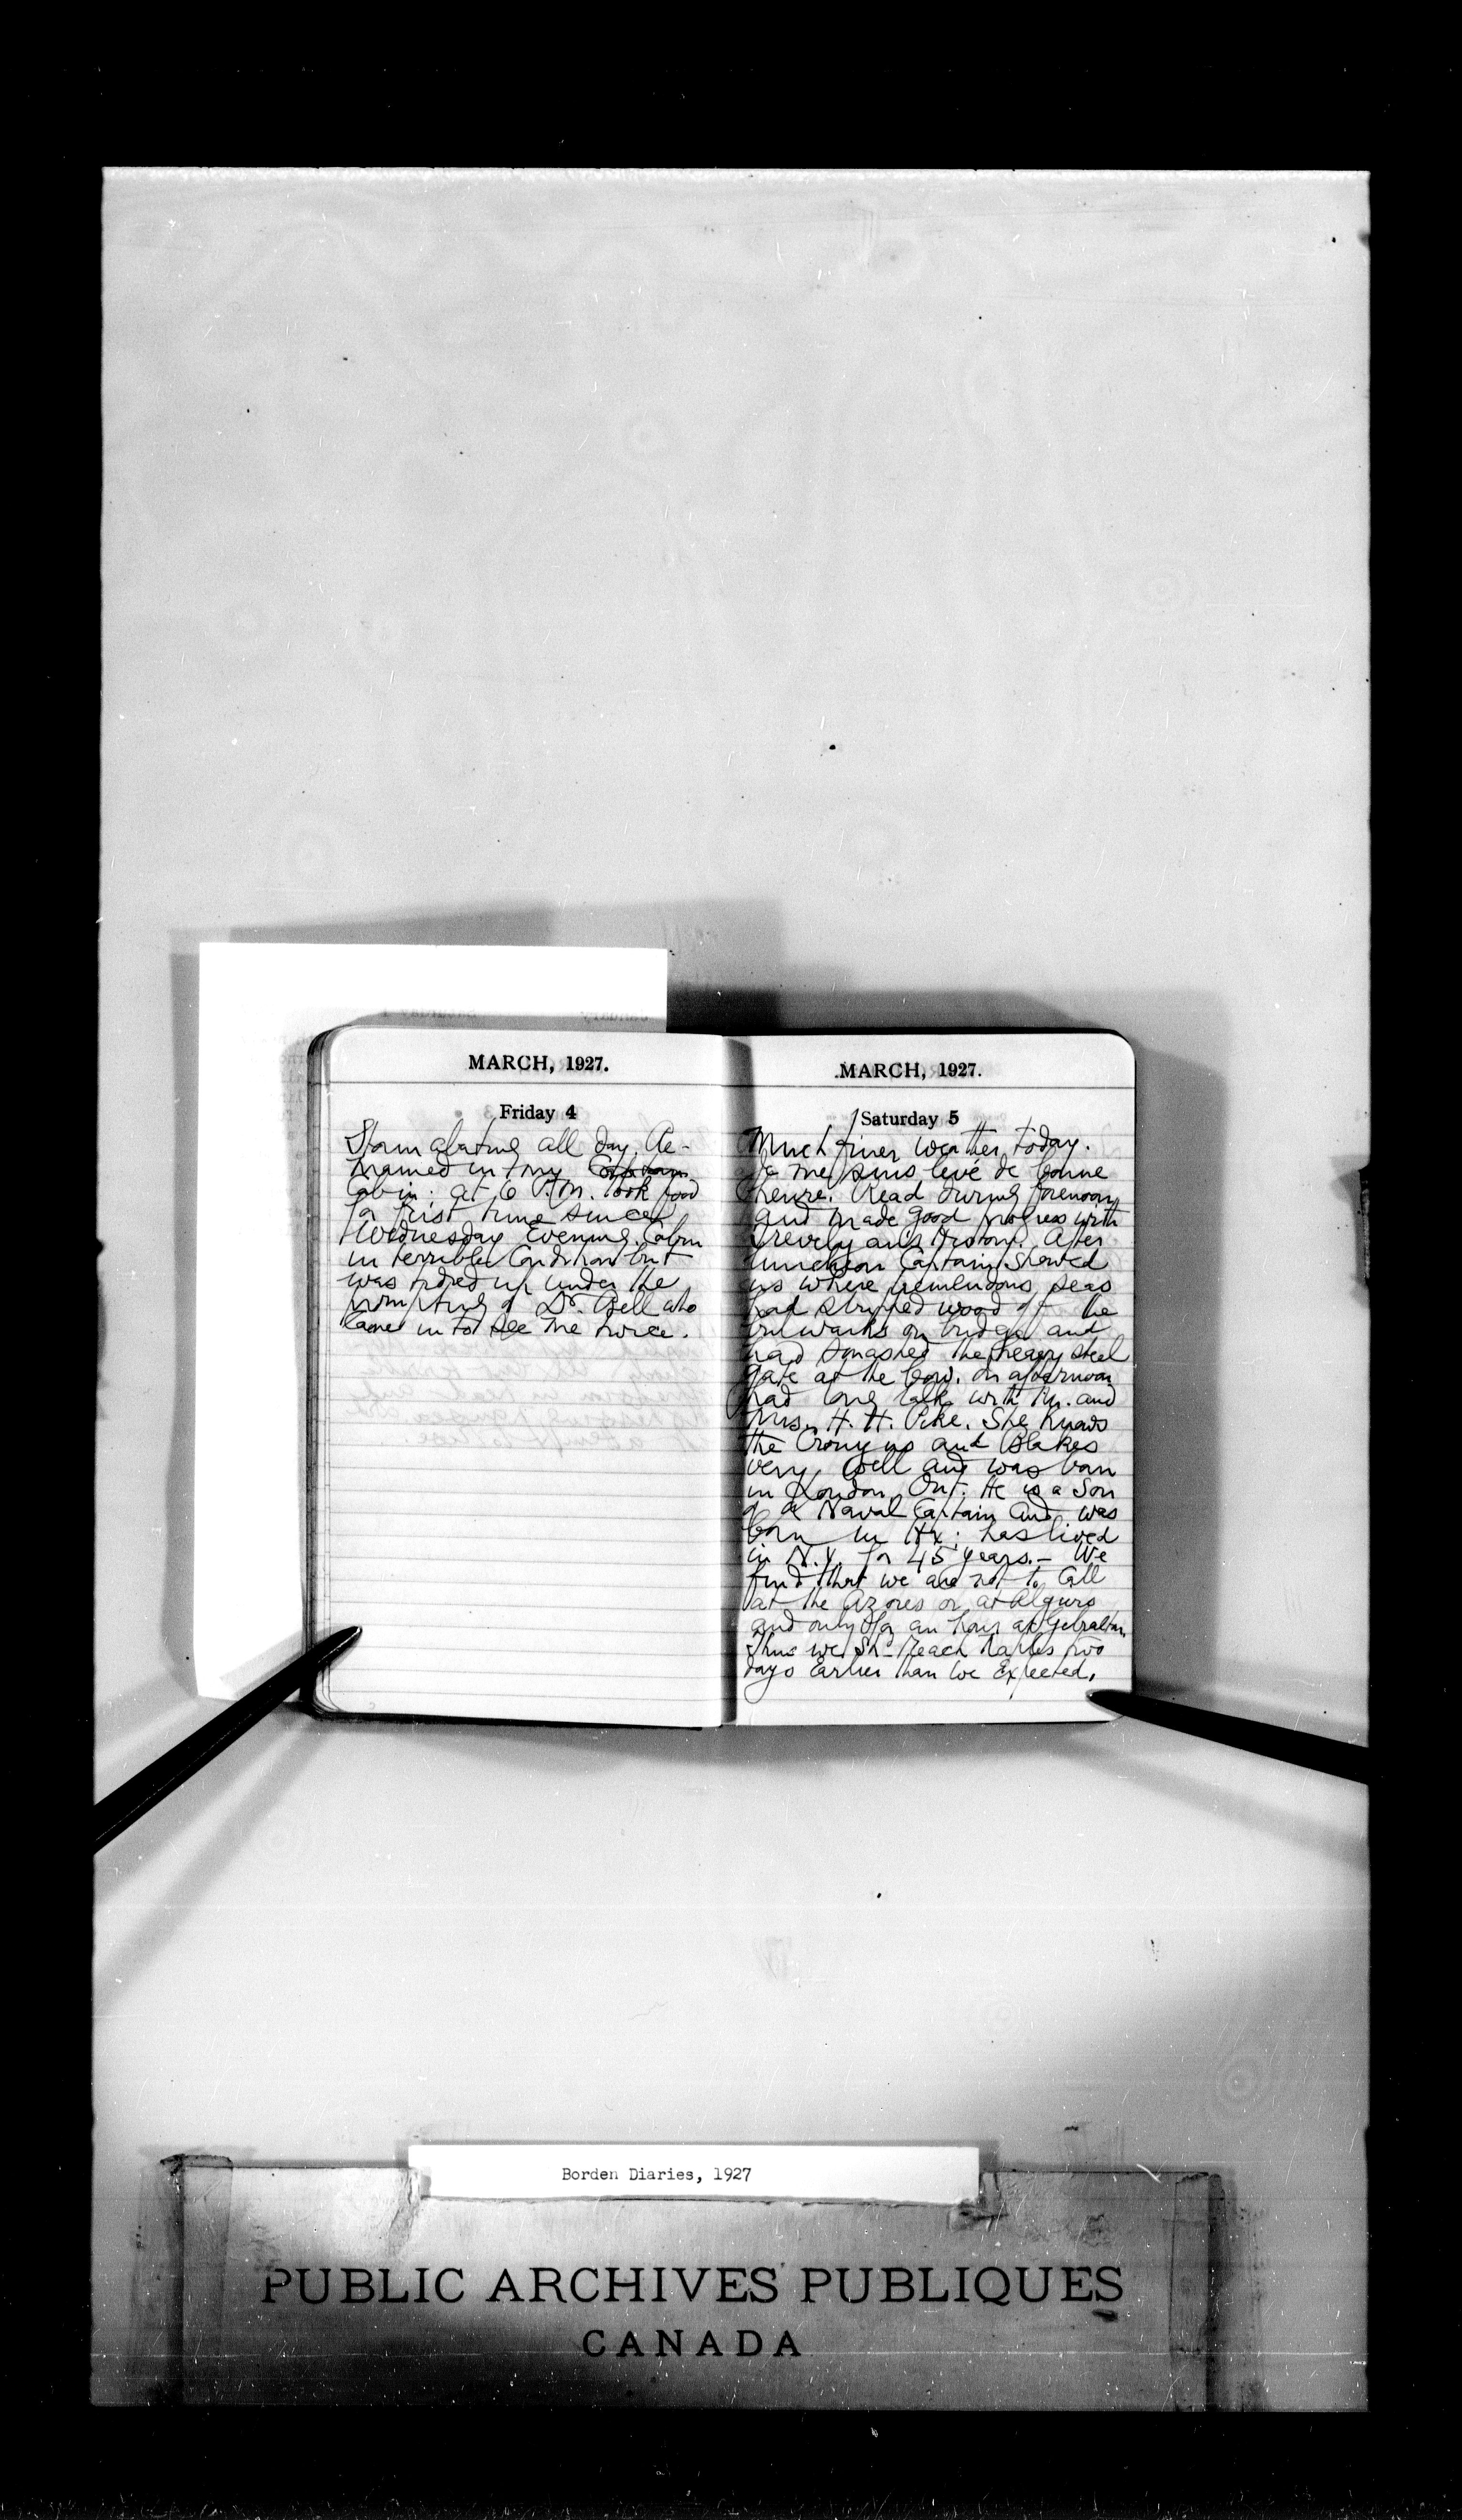 MARCH, 1927.
Friday 4
Storm abating all day. Re-
mained in my
Cabin: at 6 P.M. took food
for first time since
Wednesday Evening. Cabin
in terrible Condition but
was tidied up under the
prompting of Dr. Bell who
came in to see me twice.
MARCH, 1927.
Saturday 5
Much finer weather today.
Je me suis levé de bonne
heure. Read during forenoon
and made good progress with
History. After
luncheon Captain showed
us where tremendous seas
had stripped wood off the
bulwarks on bridge and
had smashed the heavy steel
gate at the bow. In afternoon
had long talk with Mr. and
Mrs. H. H. Pike. She knows
the Cronyns and Blakes
very well and was born
in London, Ont. He is a son
of a Naval Captain and was
born in Hx; has lived
in N.Y. for 45 years. – We
find that we are not to call
at the Azores or at Algiers
and only for an hour at Gibraltar.
Thus we shd. reach Naples two
days earlier than we expected.
Borden Diaries, 1927
PUBLIC ARCHIVES PUBLIQUES
CANADA